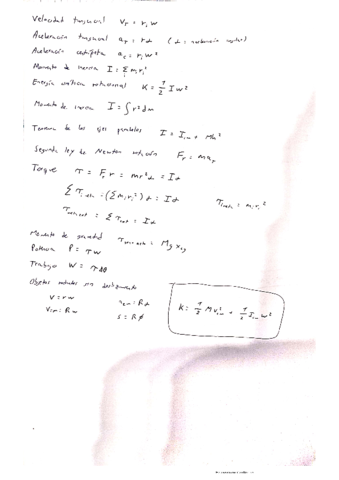 Velocidad tangencial v_T = r_i w
Aceleración tangencial a_T = r α (α = aceleración angular)
Aceleración centrípeta a_c = r_i w²
Momento de inercia I = Σ m_i r_i²
Energía cinética rotacional K = 1/2 I w²
Momento de inercia I = ∫ r² dm
Teorema de los ejes paralelos I = I_cm + Md²
Segunda ley de Newton rotación F_T = m a_T
Torque τ = F_T r = m r² α = I α
Στ_i = (Σ m_i r_i²) α = I α
= Σ τ_ext = I α
Momento de gravedad = M g x_cg
Potencia P = τ w
Trabajo W = τ Δθ
Objetos rodando sin deslizamiento
v = r w
v_cm = R w
a_cm = R α
s = R ϕ
K = 1/2 M v²_cm + 1/2 I_cm w²